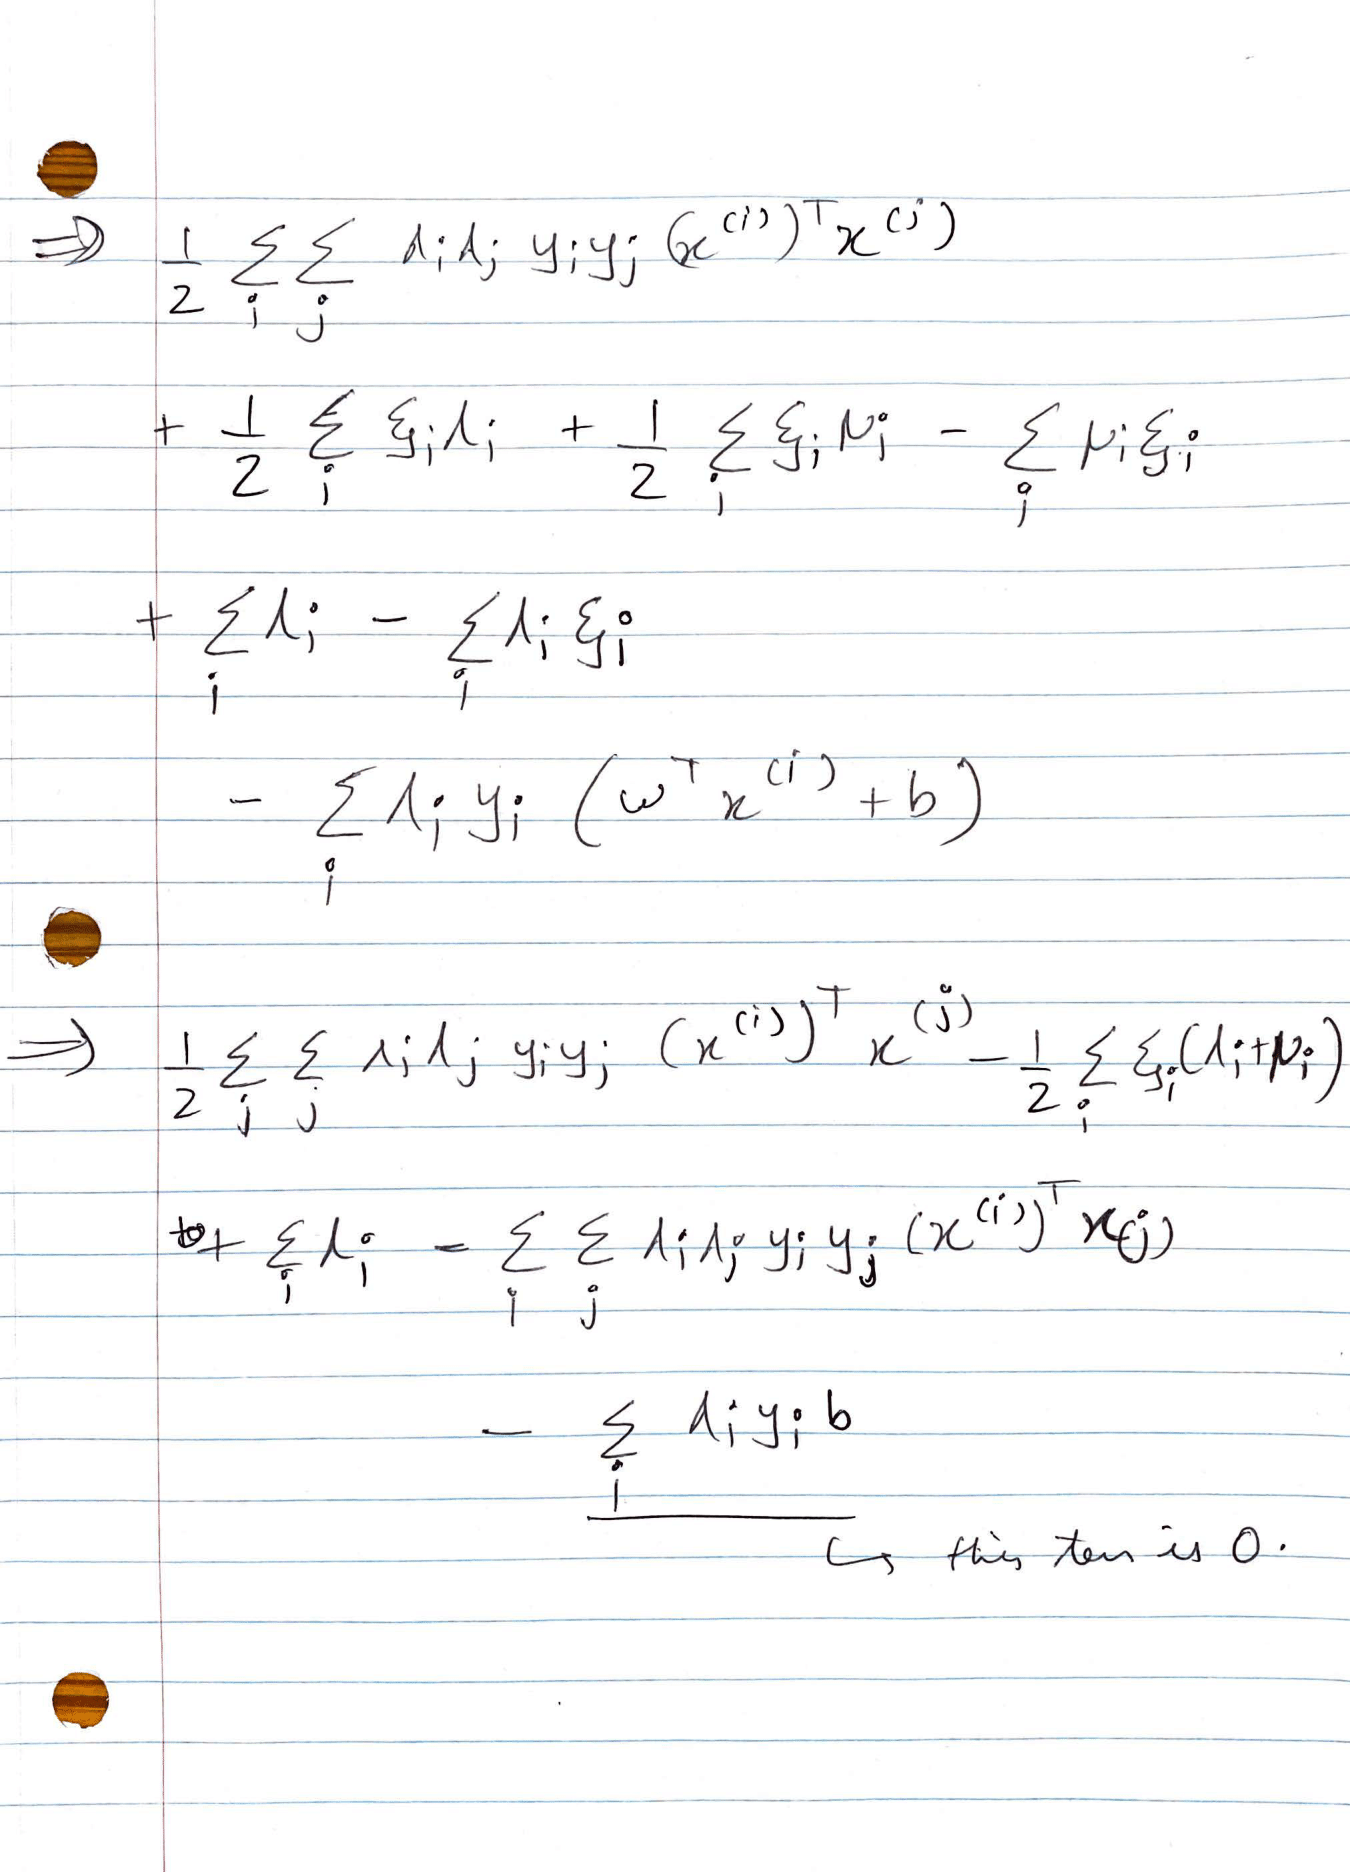 ⇒ 1/2 Σ_i Σ_j λ_i λ_j y_i y_j (x^(i))^T x^(j)
+ 1/2 Σ_i ξ_i λ_i + 1/2 Σ_i ξ_i μ_i - Σ_i μ_i ξ_i
+ Σ_i λ_i - Σ_i λ_i ξ_i
- Σ_i λ_i y_i (w^T x^(i) + b)
⇒ 1/2 Σ_j Σ_j λ_i λ_j y_i y_j (x^(i))^T x^(j) - 1/2 Σ_i ξ_i (λ_i + μ_i)
+ Σ_i λ_i - Σ_i Σ_j λ_i λ_j y_i y_j (x^(i))^T x(j)
- Σ_i λ_i y_i b
↳ this term is 0.